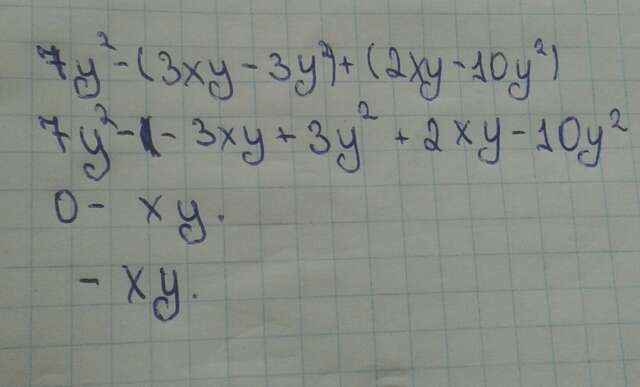 7y² - (3xy - 3y²) + (2xy - 10y²)
7y² - - 3xy + 3y² + 2xy - 10y²
0 - xy.
- xy.